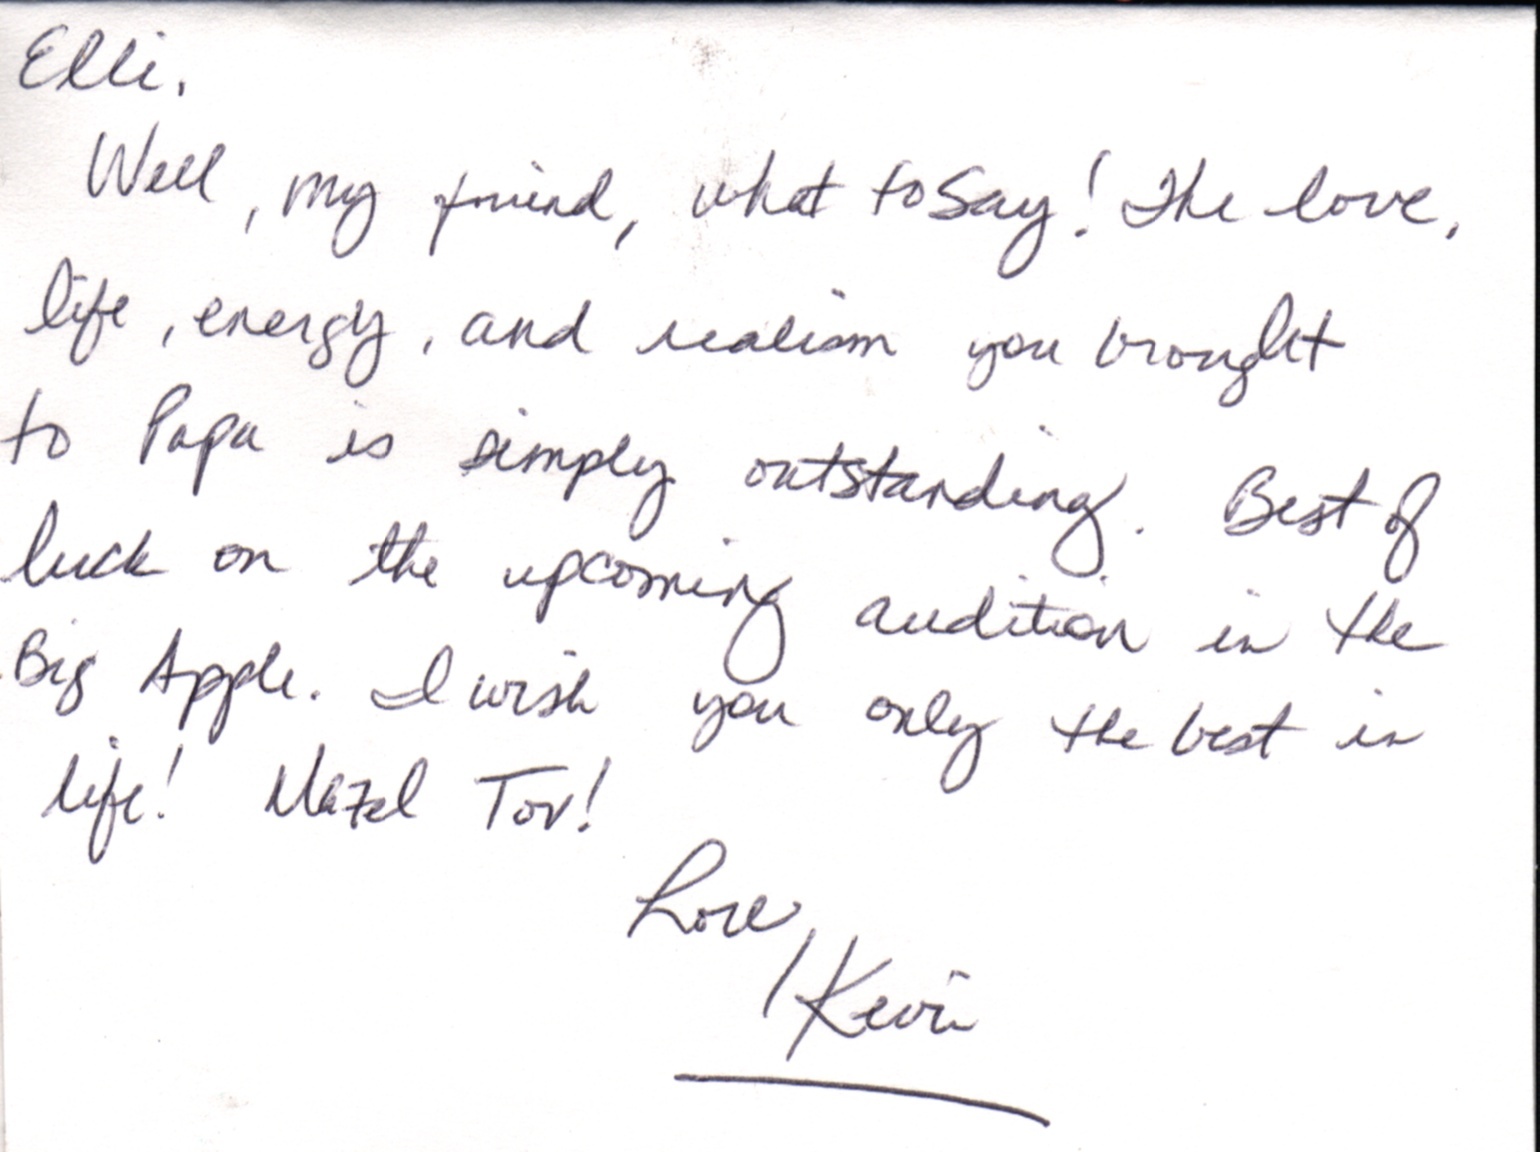 Elli,
Well, my friend, what to say! The love,
life, energy, and realism you brought
to Papa is simply outstanding. Best of
luck on the upcoming audition in the
Big Apple. I wish you only the best in
life! Mazel Tov!
Love,
Kevin